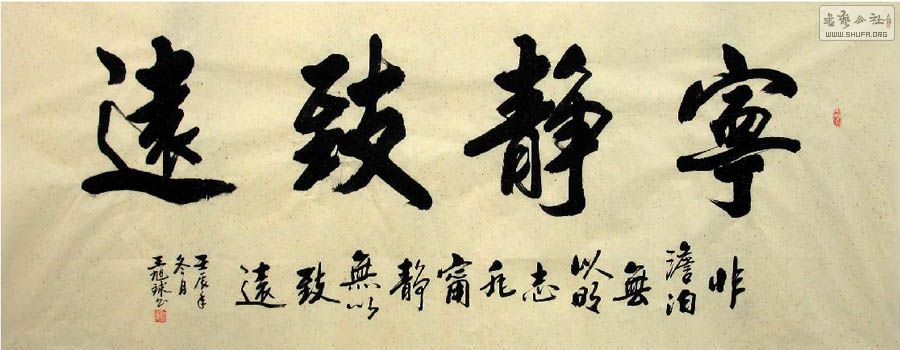 寧静致遠
非澹泊無以明志非甯静無以致遠
壬辰年
冬月
王旭球书
書藝公社
WWW.SHUFA.ORG